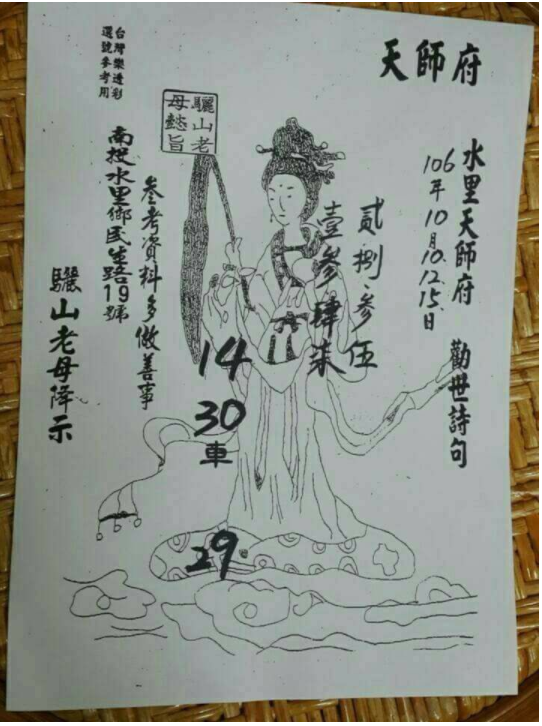 天師府
水里天師府 勸世詩句
106年10月10.12.15日
貳捌參伍
壹參肆柒
14
30
車
29
驪山老母懿旨
參考資料多做善事
南投水里鄉民生路19號
台灣樂透彩
選號參考用
驪山老母降示